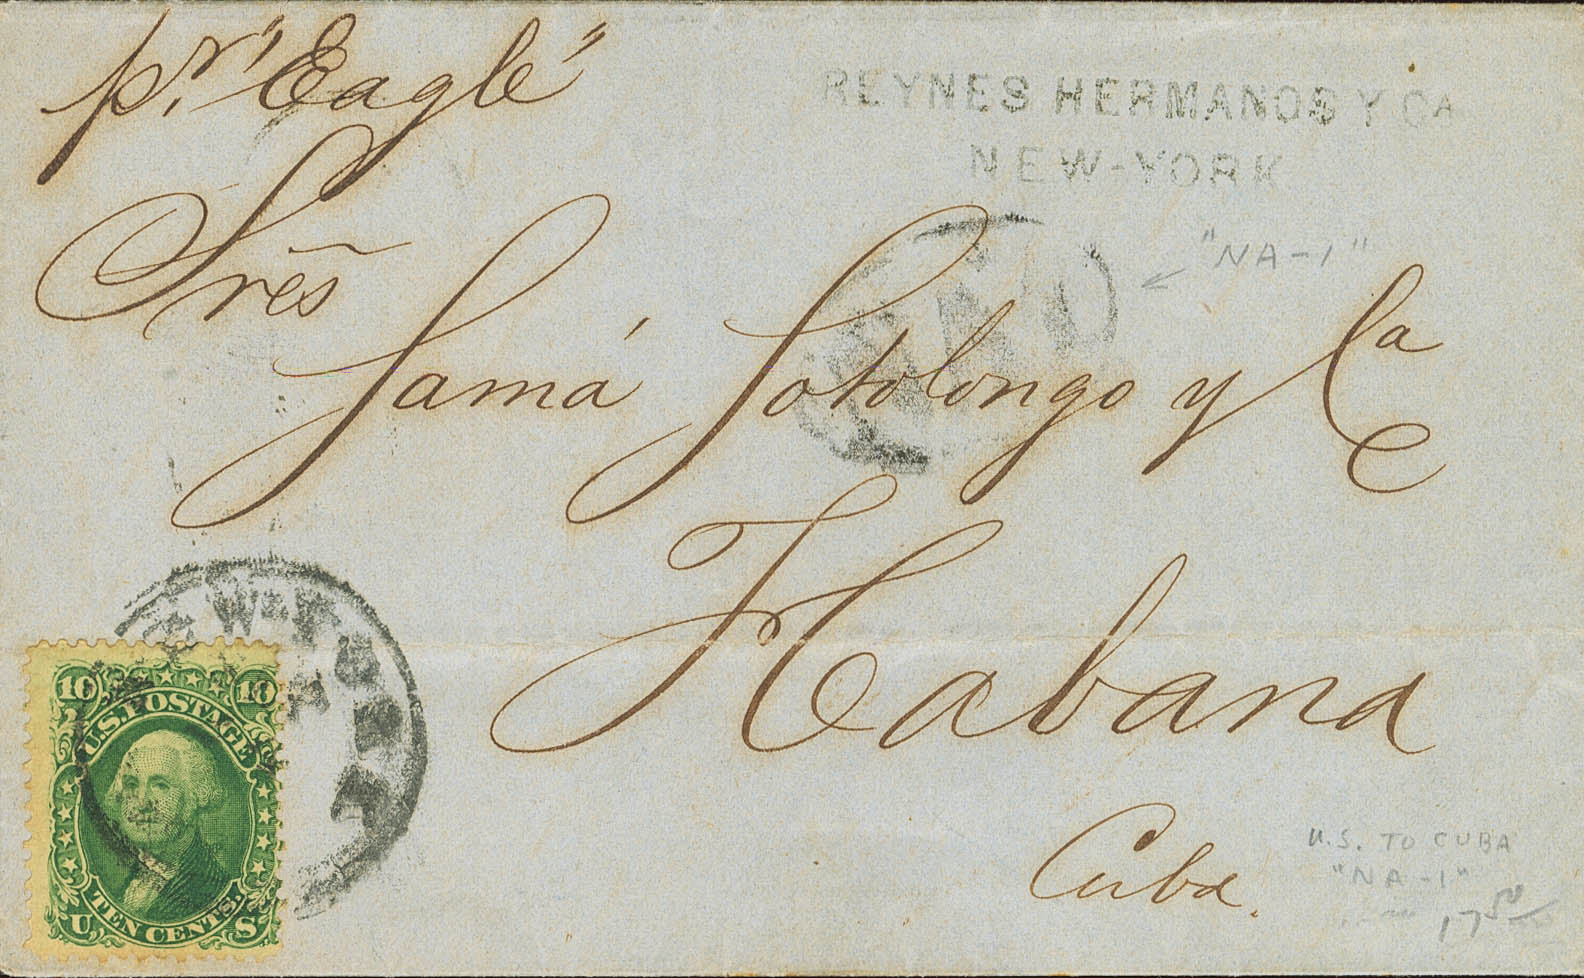 pr. "Eagle"
REYNES HERMANOS Y CA
NEW-YORK
"NA-1"
Sres
Samá Sotolongo y Ca
Habana
Cuba.
NEW-YORK
10 10
U.S. POSTAGE
TEN CENTS.
U S
U.S. TO CUBA
"NA-1"
17 50